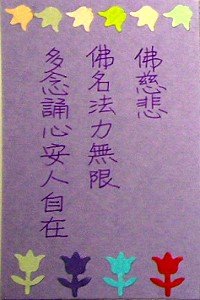 佛慈悲
佛名法力無限
多念誦心安人自在